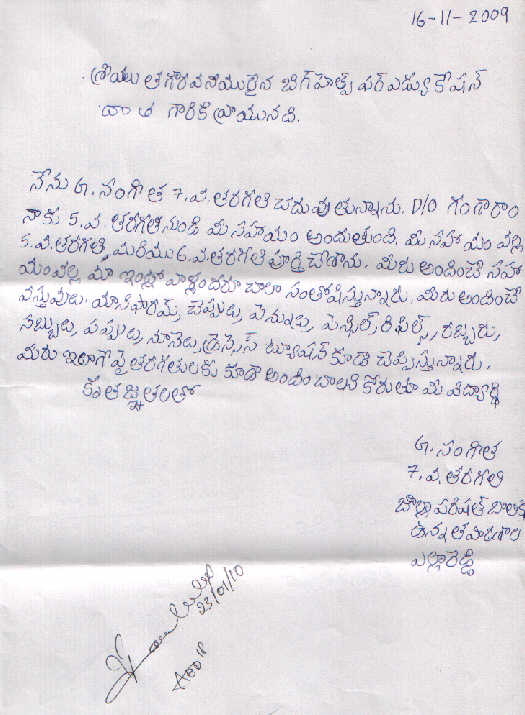 16-11-2009
శ్రీయుత గౌరవనీయులైన బిగ్ హెల్ప్ ఫర్ ఎడ్యుకేషన్
దాత గారికి వ్రాయునది.
నేను G. సంగీత 7.వ. తరగతి చదువుతున్నాను. D/O గంగారాం
నాకు 5.వ. తరగతి నుండి మీ సహాయం అందుతుంది. మీ సహాయం వల్ల
5.వ.తరగతి, మరియు 6.వ.తరగతి పూర్తి చేశాను. మీరు అందించే సహా
యంవల్ల మా ఇంట్లో వాళ్లందరూ చాలా సంతోషిస్తున్నారు. మీరు అందించే
వస్తువులు యూనిఫారమ్, చెప్పులు, పెన్నులు, పెన్సిల్, రిఫిల్స్, రబ్బరు,
సబ్బులు, పప్పులు, నూనెలు, డ్రెస్సెస్ ట్యూషన్ కూడా చెప్పిస్తున్నారు.
మీరు ఇలాగే పై తరగతులకు కూడా అందించాలని కోరుతూ మీ విద్యార్థి
కృతజ్ఞతలతో
G. సంగీత
7.వ.తరగతి
జిల్లా పరిషత్ బాలికల
ఉన్నత పాఠశాల
ఎల్లారెడ్డి
23/01/10